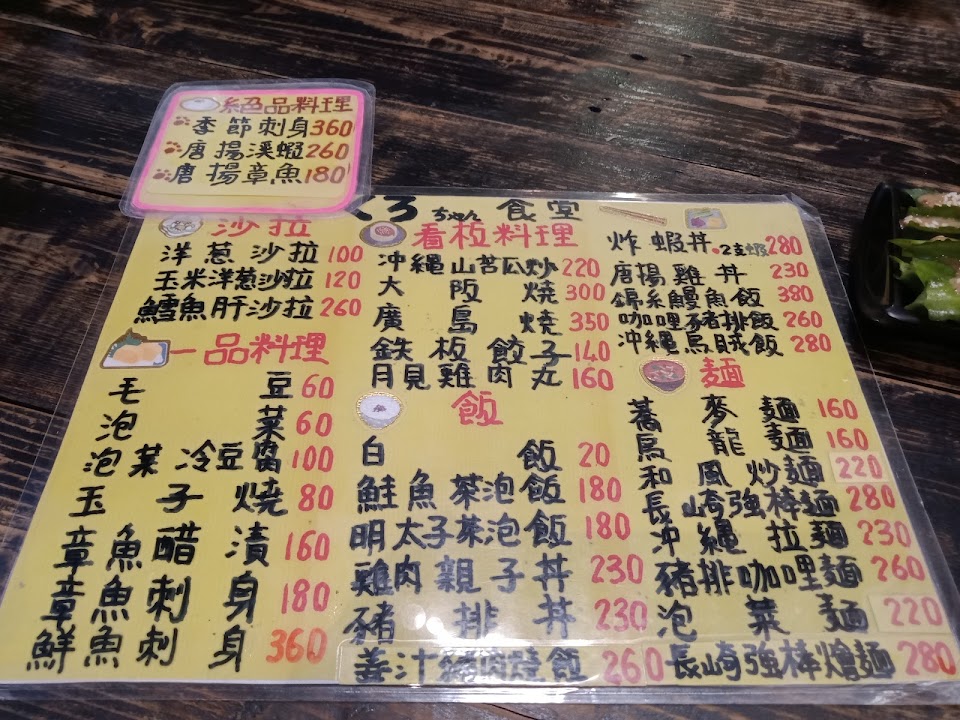 絕品料理
季節刺身360
唐揚溪蝦260
唐揚章魚180
くろちゃん 食堂
沙拉
洋蔥沙拉 100
玉米洋蔥沙拉 120
鱈魚肝沙拉 260
一品料理
毛豆 60
泡菜 60
泡菜冷豆腐 100
玉子燒 80
章魚醋漬 160
章魚刺身 180
鮮魚刺身 360
看板料理
沖繩山苦瓜炒 220
大阪燒 300
廣島燒 350
鉄板餃子 140
月見雞肉丸 160
飯
白飯 20
鮭魚茶泡飯 180
明太子茶泡飯 180
雞肉親子丼 230
豬排丼 230
姜汁 燒飯 260
炸蝦丼.2支蝦 280
唐揚雞丼 230
錦糸鰻魚飯 380
咖哩豬排飯 260
沖繩烏賊飯 280
麵
蕎麥麵 160
烏龍麵 160
和風炒麵 220
長崎強棒麵 280
沖繩拉麵 230
豬排咖哩麵 260
泡菜麵 220
長崎強棒燴麵 280